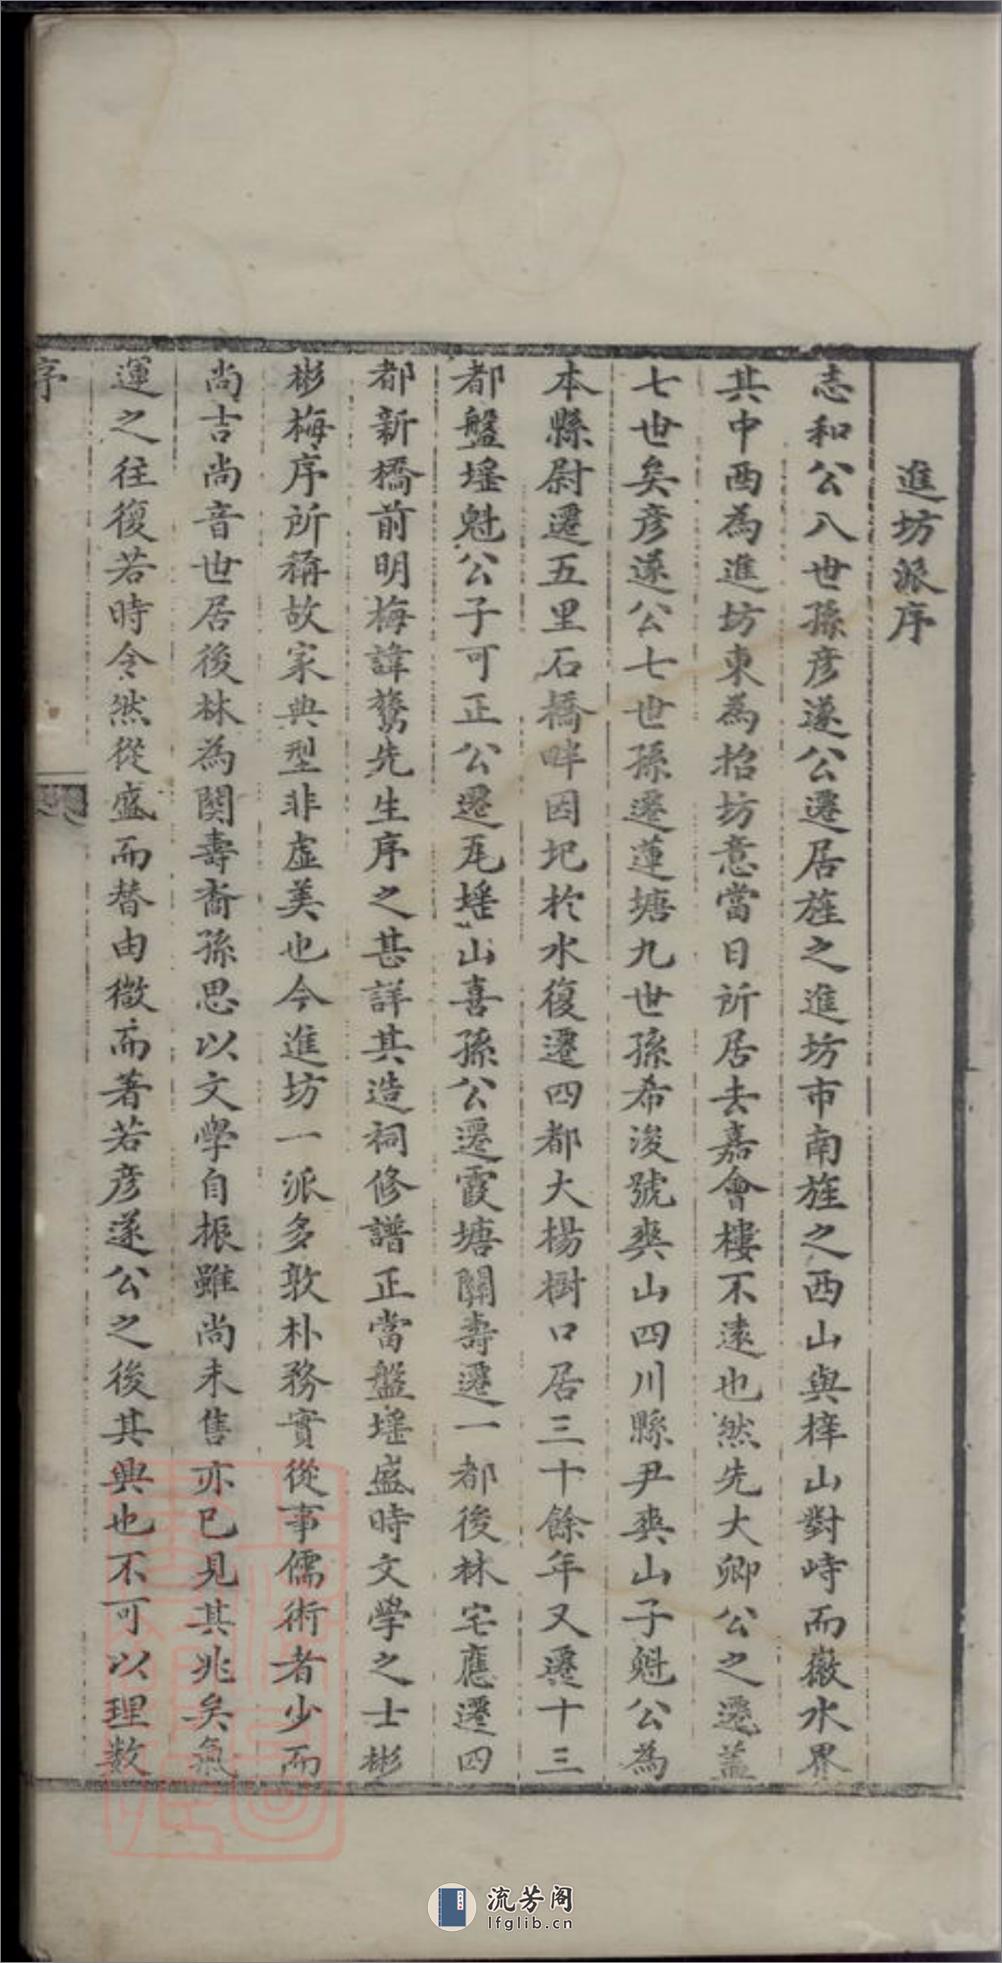 進坊派序
志和公八世孫彥遂公遷居旌之進坊市南旌之西山與梓山對峙而徽水界
其中西為進坊東為招坊意當日所居去嘉會樓不遠也然先大卿公之遷蓋
七世矣彥遂公七世孫遷蓮塘九世孫希浚號爽山四川縣尹爽山子魁公為
本縣尉遷五里石橋畔因圮於水復遷四都大楊樹口居三十餘年又遷十三
都盤墭魁公子可正公遷瓦墭山喜孫公遷霞塘關壽遷一都後林宅應遷四
都新橋前明梅諱鶩先生序之甚詳其造祠修譜正當盤墭盛時文學之士彬
彬梅序所稱故家典型非虛美也今進坊一派多敦朴務實從事儒術者少而
尚吉尚音世居後林為関壽裔孫思以文學自振雖尚未售亦已見其兆矣氣
運之往復若時令然從盛而替由微而著若彥遂公之後其興也不可以理數
序
流芳阁
lfglib.cn